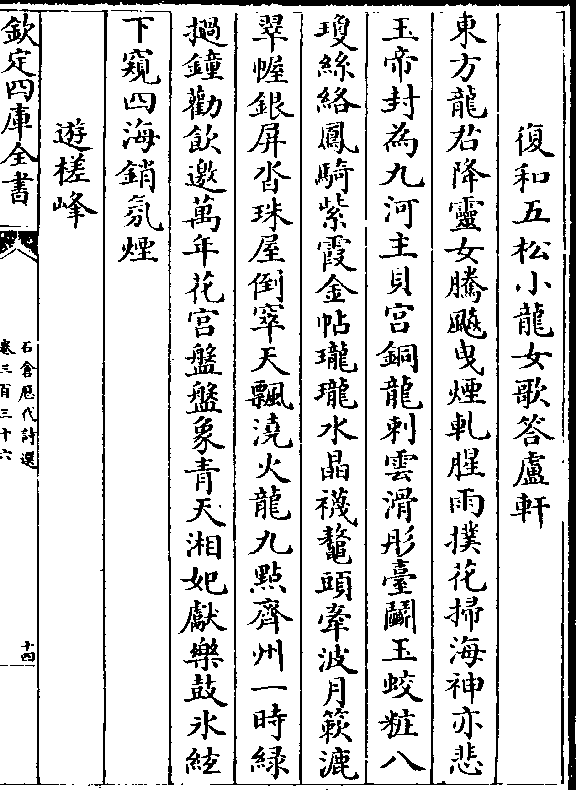 復和五松小龍女歌答盧軒
東方龍君降靈女騰颷曳煙軋腥雨撲花掃海神亦悲
玉帝封為九河主貝宮銅龍刺雲滑彤臺鬭玉蛟粧八
瓊絲絡鳳騎紫霞金帖瓏瓏水晶襪鼇頭牽波月簌漉
翠幄銀屏沓珠屋倒窣天飄澆火龍九點齊州一時緑
撾鐘勸飲邀萬年花宮盤盤象青天湘妃獻樂鼓氷絃
下窺四海銷氛煙
遊槎峰
欽定四庫全書
石倉歷代詩選
卷三百三十六
十四